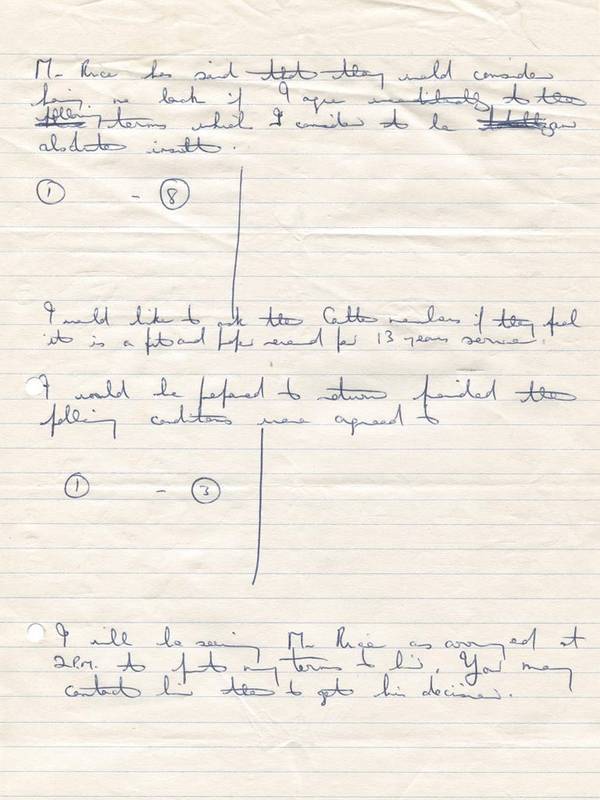 Mr Rice has said that they would consider
having me back if I agree unconditionally to the
following terms which I consider to be an
absolute insult.
① - ⑧
I would like to ask the Cttee members if they feel
it is a fit and proper reward for 13 years service.
I would be prepared to return provided the
following conditions were agreed to
① - ③
I will be seeing Mr Rice as arranged at
2P.M. to put my terms to him. You may
contact him then to get his decision.